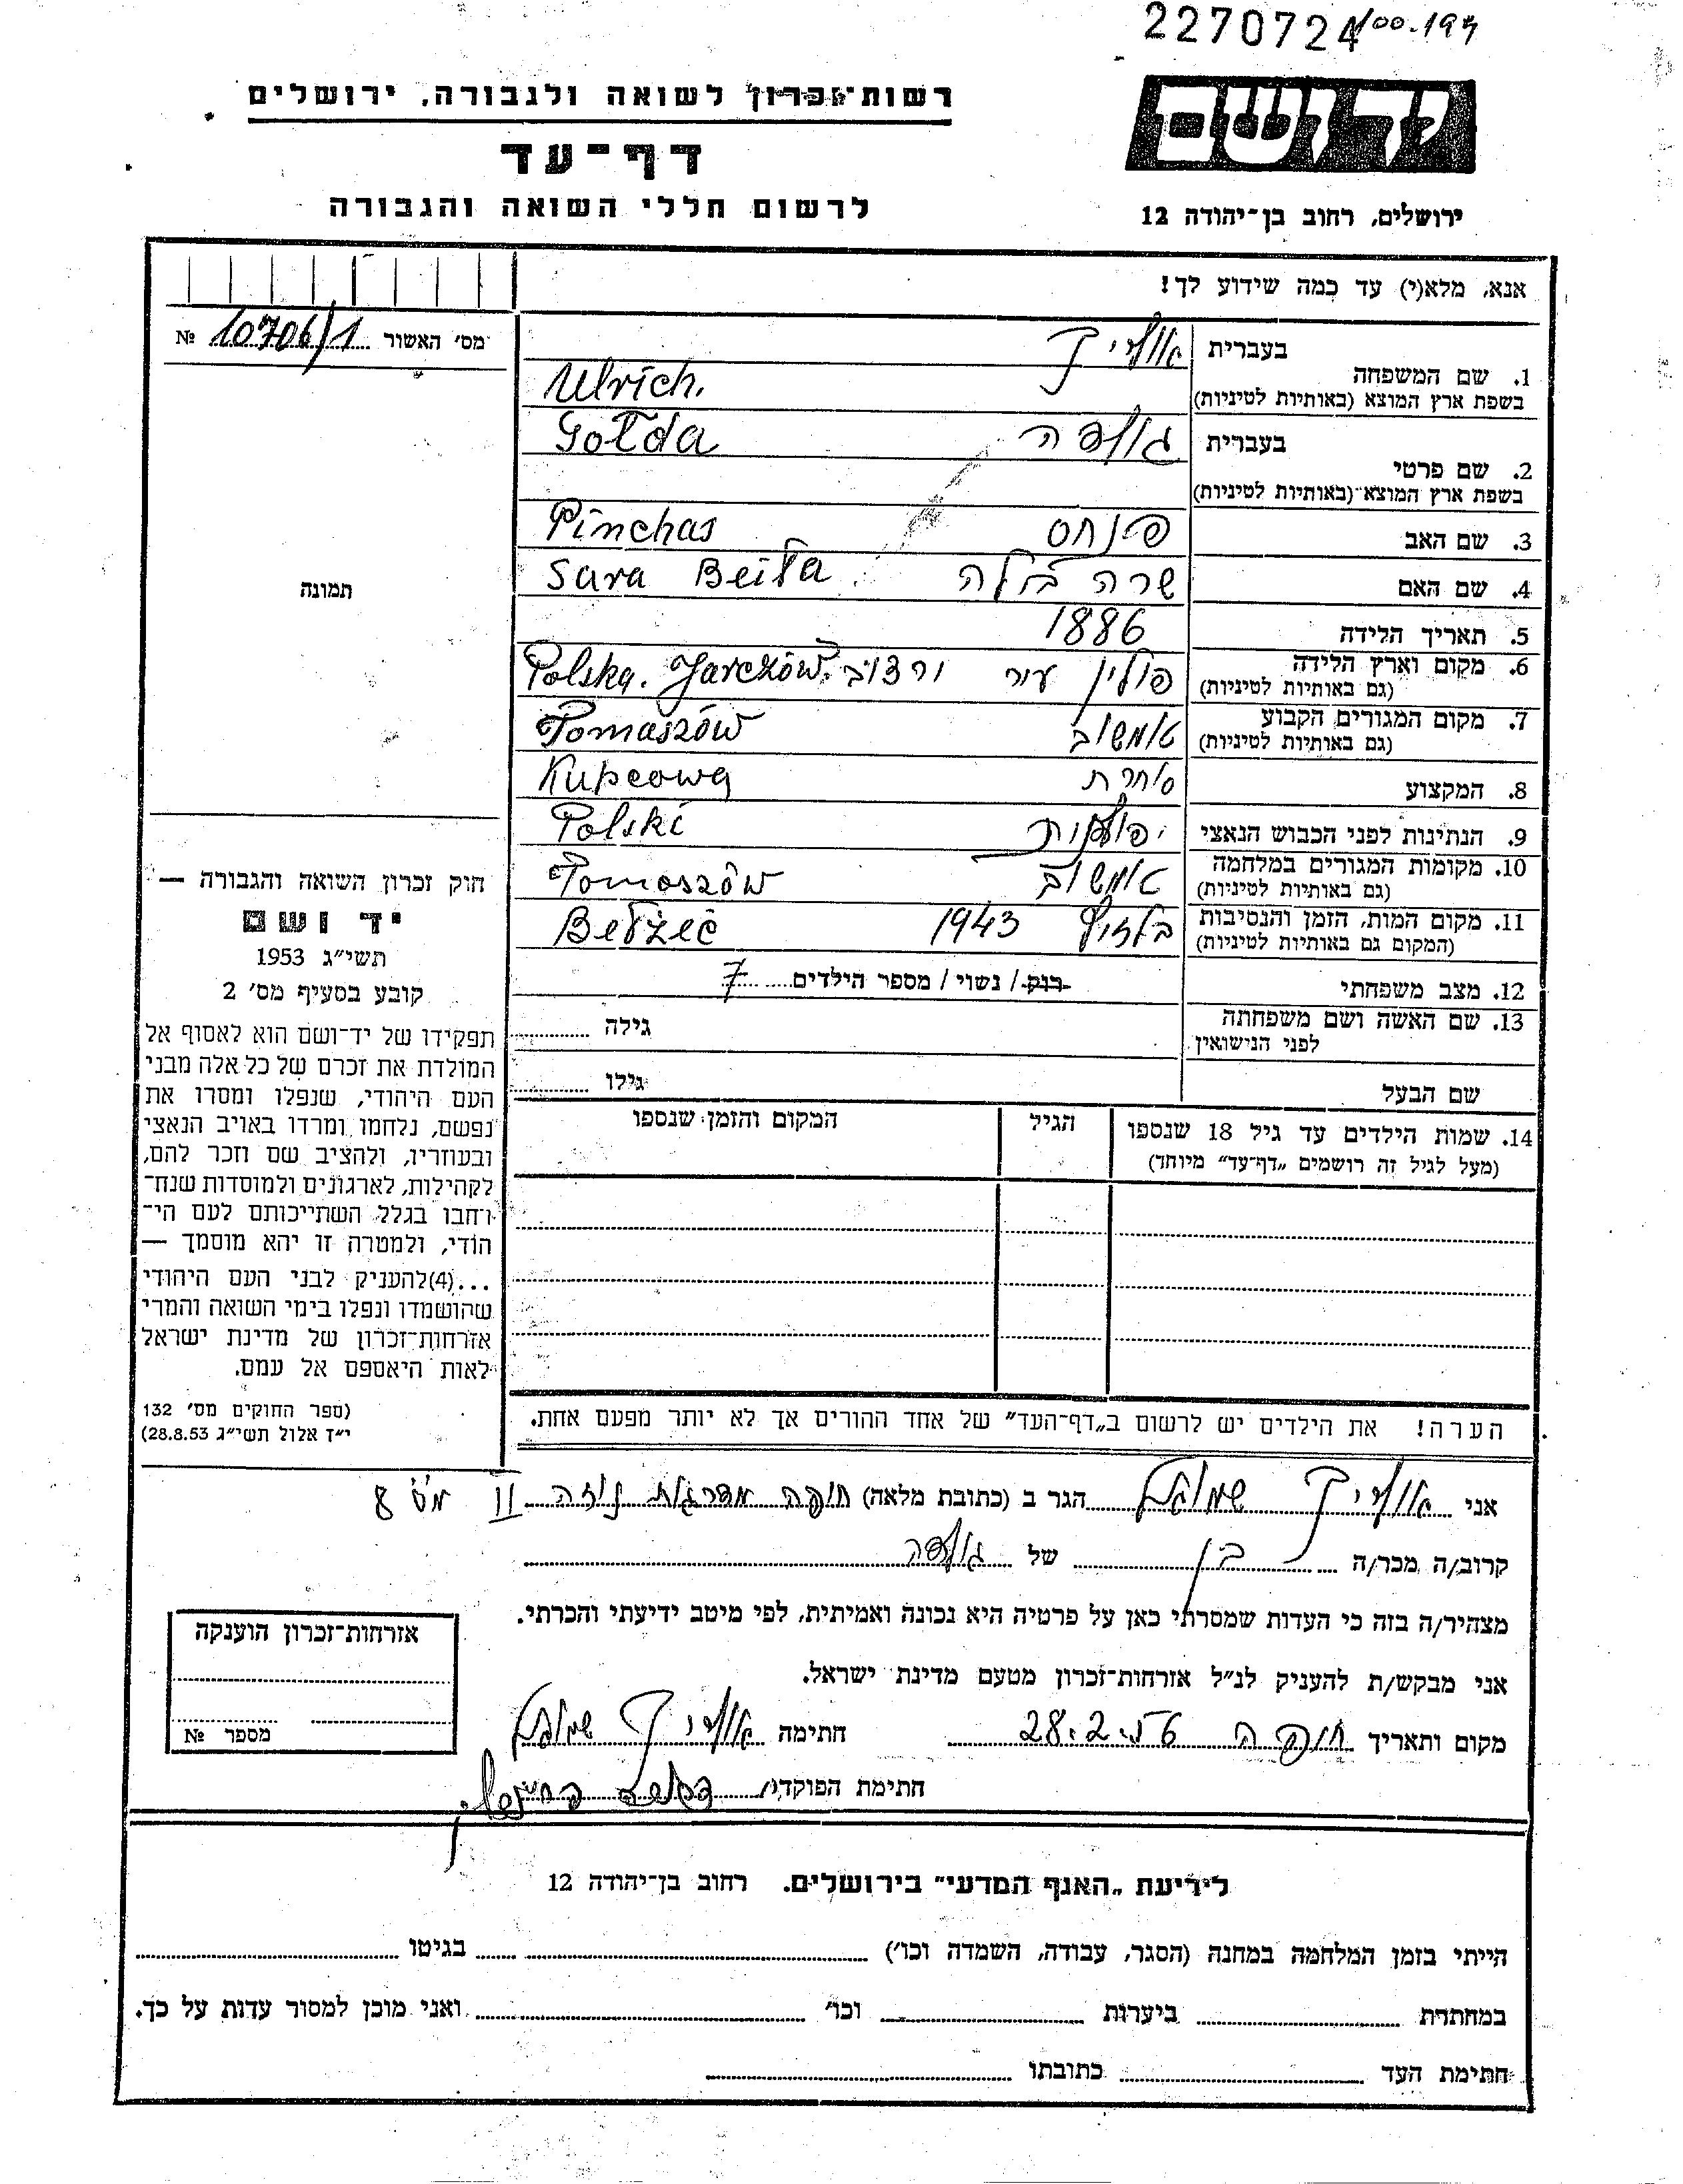 2270724 100-194
רשות־זכרון לשואה ולגבורה, ירושלים
יד ושם
דף־עד
לרשום חללי השואה והגבורה
ירושלים, רחוב בן־יהודה 12
אנא, מלא(י) עד כמה שידוע לך!
מס׳ האשור 10706/1 №
בעברית אולריך
1. שם המשפחה
בשפת ארץ המוצא (באותיות לטיניות) Ulrich.
בעברית גולדה Gołda
2. שם פרטי
בשפת ארץ המוצא (באותיות לטיניות)
3. שם האב פנחס Pinchas
4. שם האם שרה בילה Sara Beiła
5. תאריך הלידה 1886
6. מקום וארץ הלידה פולין עיר Polska. Jarczów.
(גם באותיות לטיניות)
7. מקום המגורים הקבוע טומשוב Tomaszów
(גם באותיות לטיניות)
8. המקצוע סוחרת Kupcowa
9. הנתינות לפני הכבוש הנאצי Polski
10. מקומות המגורים במלחמה טומשוב Tomoszów
(גם באותיות לטיניות)
11. מקום המות, הזמן והנסיבות בלזיץ 1943 Bełżec
(המקום גם באותיות לטיניות)
12. מצב משפחתי רוק / נשוי / מספר הילדים 7
13. שם האשה ושם משפחתה
לפני הנישואין
גילה
שם הבעל גילו
14. שמות הילדים עד גיל 18 שנספו
(מעל לגיל זה רושמים „דף־עד״ מיוחד)
הגיל
המקום והזמן שנספו
הערה! את הילדים יש לרשום ב„דף־העד״ של אחד ההורים אך לא יותר מפעם אחת.
תמונה
חוק זכרון השואה והגבורה —
יד ושם
תשי״ג 1953
קובע בסעיף מס׳ 2
תפקידו של יד־ושם הוא לאסוף אל
המולדת את זכרם של כל אלה מבני
העם היהודי, שנפלו ומסרו את
נפשם, נלחמו ומרדו באויב הנאצי
ובעוזריו, ולהציב שם וזכר להם,
לקהילות, לארגונים ולמוסדות שנח־
רבו בגלל השתייכותם לעם הי־
הודי, ולמטרה זו יהא מוסמך —
...(4)להעניק לבני העם היהודי
שהושמדו ונפלו בימי השואה והמרי
אזרחות־זכרון של מדינת ישראל
לאות היאספם אל עמם.
(ספר החוקים מס׳ 132
י״ז אלול תשי״ג 28.8.53)
אני אולריך שמואל הגר ב (כתובת מלאה) חיפה מדרגות II מס 8
קרוב/ה מכר/ה בן של גולדה
מצהיר/ה בזה כי העדות שמסרתי כאן על פרטיה היא נכונה ואמיתית, לפי מיטב ידיעתי והכרתי.
אני מבקש/ת להעניק לנ״ל אזרחות־זכרון מטעם מדינת ישראל.
מקום ותאריך חיפה 28.2 חתימה אולריך שמואל
חתימת הפוקד
אזרחות־זכרון הוענקה
מספר №
לידיעת „האגף המדעי״ בירושלים. רחוב בן־יהודה 12
הייתי בזמן המלחמה במחנה (הסגר, עבודה, השמדה וכו׳) בגיטו
במחתרת ביערות וכו׳ ואני מוכן למסור עדות על כך.
חתימת העד כתובתו